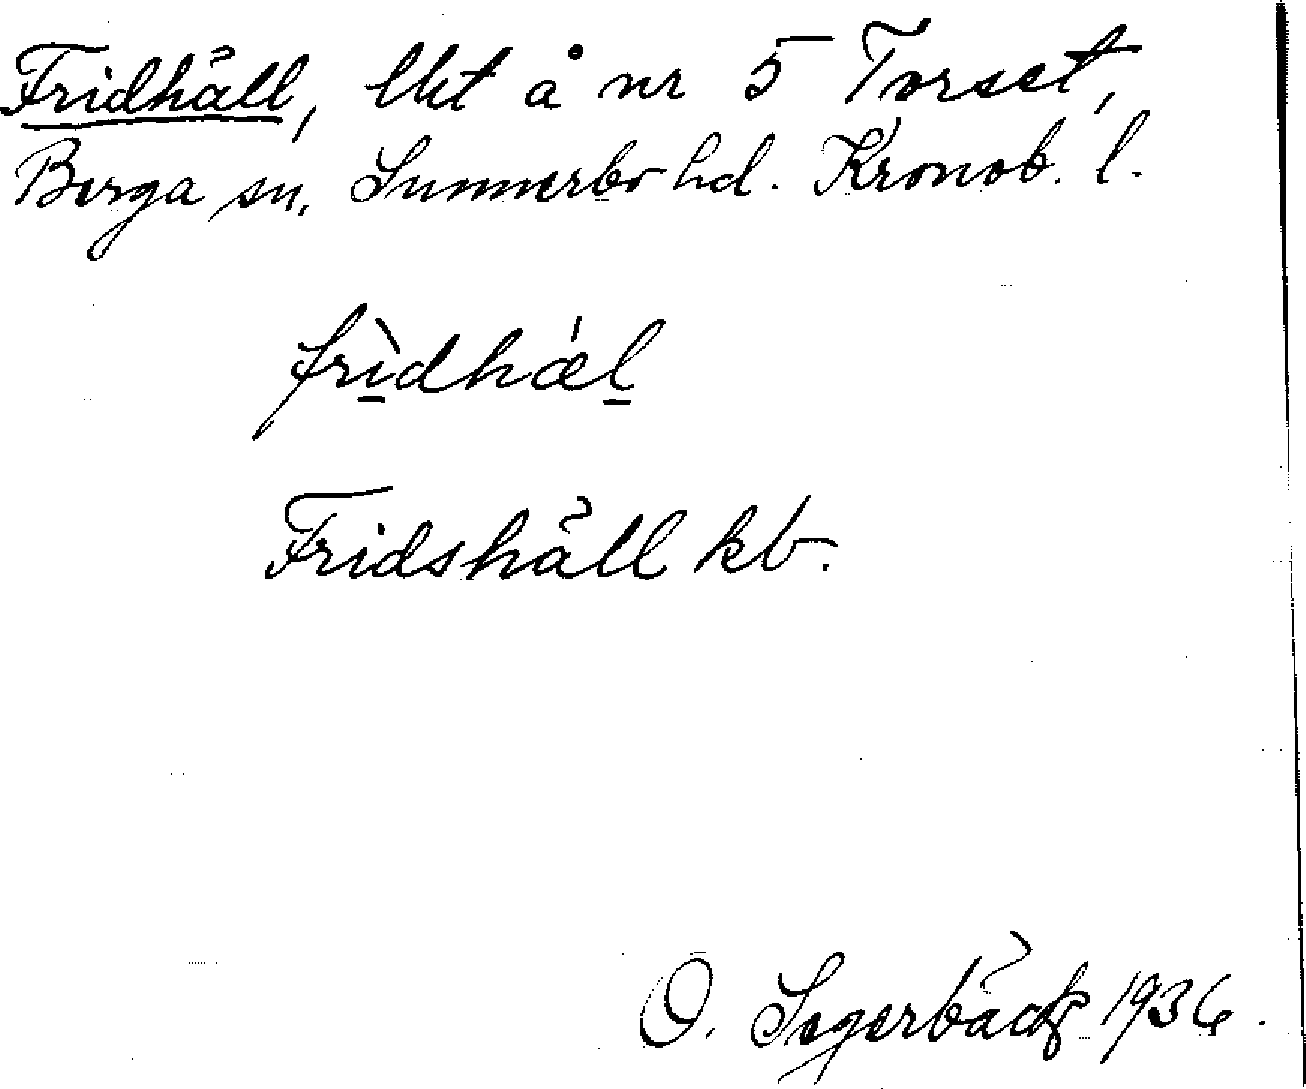 Fridhäll, lht å nr 5 Torset,
Berga sn. Sunnerbo hd. Kronob. l.
frì̠dhǽl̠
Fridshäll kb.
O. Segerbäck 1936.